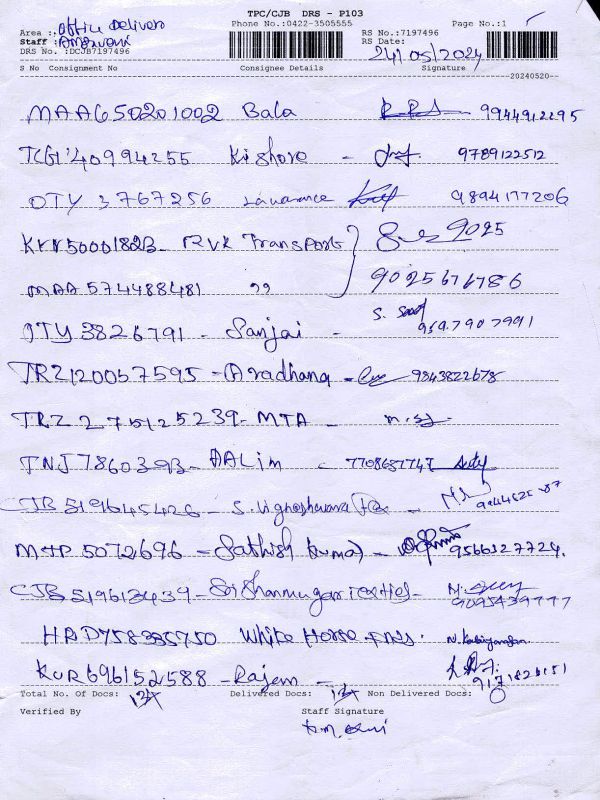 TPC/CJB DRS - P103
Area : office Delivery Phone No.:0422-3505555 RS No.:7197496 Page No.:1
Staff : RS Date:
DRS No.:DCJB7197496 24/05/2024
S No Consignment No Consignee Details Signature
20240520
MAA650201002 Bala 9944912295
TCG140994255 Kishore - 9789122512
OTY 3767256 Lawarance 9894177206
50001823 - RVK Transport 9025
MAA 574488481 " 9025676786
OTY 3826791 - Sanjai - S. 9597907991
TRZ1200057595 - Aradhana - 9843822678
TRZ 275125239 - MTA -
TNJ 7860393 - DALim - 7708657747
CJB 519645426 - S. Vigneshwara
MTP 5072696 - Sathish kumar - 9566327724.
CJB 519613439 - Sri Shanmuga - 9095439777
758335750 White Horse
KUR696152588 - Rajem - 9171828151
Total No. Of Docs: Delivered Docs: Non Delivered Docs: 0
Verified By Staff Signature